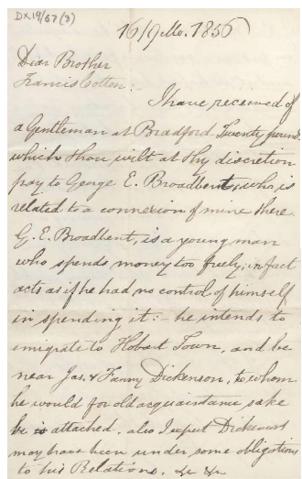 DX19/67(3)
16/9 Mo. 1856
Dear Brother
Francis Cotton:-
I have received of
a Gentleman at Bradford Twenty pound
which thou wilt at thy discretion
pay to George E. Broadbent, who, is
related to a connexion of mine there
G. E. Broadbent, is a young man
who spends money too freely, in fact
acts as if he had no control of himself
in spending it:- he intends to
emigrate to Hobart Town, and be
near Jas. & Fanny Dickenson, to whom
he would for old acquaistance sake
be attached. also I expect Dickenson
may have been under some obligations
to his Relations. &c &c